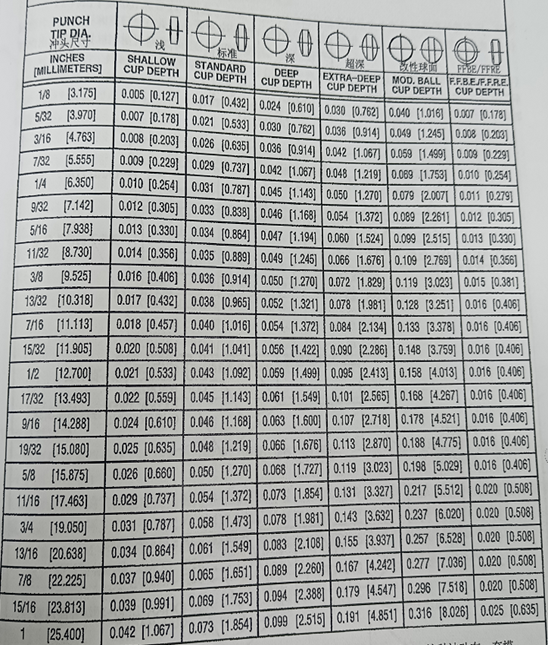 PUNCH TIP DIA. 冲头尺寸 浅 标准 深 超深 改性球面 FFBE/FFRE
INCHES [MILLIMETERS] SHALLOW CUP DEPTH STANDARD CUP DEPTH DEEP CUP DEPTH EXTRA-DEEP CUP DEPTH MOD. BALL CUP DEPTH F.F.B.E./F.F.R.E. CUP DEPTH
1/8 [3.175] 0.005 [0.127] 0.017 [0.432] 0.024 [0.610] 0.030 [0.762] 0.040 [1.016] 0.007 [0.178]
5/32 [3.970] 0.007 [0.178] 0.021 [0.533] 0.030 [0.762] 0.036 [0.914] 0.049 [1.245] 0.008 [0.203]
3/16 [4.763] 0.008 [0.203] 0.026 [0.635] 0.036 [0.914] 0.042 [1.067] 0.059 [1.499] 0.009 [0.229]
7/32 [5.555] 0.009 [0.229] 0.029 [0.737] 0.042 [1.067] 0.048 [1.219] 0.069 [1.753] 0.010 [0.254]
1/4 [6.350] 0.010 [0.254] 0.031 [0.787] 0.045 [1.143] 0.050 [1.270] 0.079 [2.007[ 0.011 [0.279]
9/32 [7.142] 0.012 [0.305] 0.033 [0.838] 0.046 [1.168] 0.054 [1.372] 0.089 [2.261] 0.012 [0.305]
5/16 [7.938] 0.013 [0.330] 0.034 [0.864] 0.047 [1.194] 0.060 [1.524] 0.099 [2.515] 0.013 [0.330]
11/32 [8.730] 0.014 [0.356] 0.035 [0.889] 0.049 [1.245] 0.066 [1.676] 0.109 [2.769] 0.014 [0.356]
3/8 [9.525] 0.016 [0.406] 0.036 [0.914] 0.050 [1.270] 0.072 [1.829] 0.119 [3.023] 0.015 [0.381]
13/32 [10.318] 0.017 [0.432] 0.038 [0.965] 0.052 [1.321] 0.078 [1.981] 0.128 [3.251] 0.016 [0.406]
7/16 [11.113] 0.018 [0.457] 0.040 [1.016] 0.054 [1.372] 0.084 [2.134] 0.133 [3.378] 0.016 [0.406]
15/32 [11.905] 0.020 [0.508] 0.041 [1.041] 0.056 [1.422] 0.090 [2.286] 0.148 [3.759] 0.016 [0.406]
1/2 [12.700] 0.021 [0.533] 0.043 [1.092] 0.059 [1.499] 0.095 [2.413] 0.158 [4.013] 0.016 [0.406]
17/32 [13.493] 0.022 [0.559] 0.045 [1.143] 0.061 [1.549] 0.101 [2.565] 0.168 [4.267] 0.016 [0.406]
9/16 [14.288] 0.024 [0.610] 0.046 [1.168] 0.063 [1.600] 0.107 [2.718] 0.178 [4.521] 0.016 [0.406]
19/32 [15.080] 0.025 [0.635] 0.048 [1.219] 0.066 [1.676] 0.113 [2.870] 0.188 [4.775] 0.016 [0.406]
5/8 [15.875] 0.026 [0.660] 0.050 [1.270] 0.068 [1.727] 0.119 [3.023] 0.198 [5.029] 0.016 [0.406]
11/16 [17.463] 0.029 [0.737] 0.054 [1.372] 0.073 [1.854] 0.131 [3.327] 0.217 [5.512] 0.020 [0.508]
3/4 [19.050] 0.031 [0.787] 0.058 [1.473] 0.078 [1.981] 0.143 [3.632] 0.237 [6.020] 0.020 [0.508]
13/16 [20.638] 0.034 [0.864] 0.061 [1.549] 0.083 [2.108] 0.155 [3.937] 0.257 [6.528] 0.020 [0.508]
7/8 [22.225] 0.037 [0.940] 0.065 [1.651] 0.089 [2.260] 0.167 [4.242] 0.277 [7.036] 0.020 [0.508]
15/16 [23.813] 0.039 [0.991] 0.069 [1.753] 0.094 [2.388] 0.179 [4.547] 0.296 [7.518] 0.020 [0.508]
1 [25.400] 0.042 [1.067] 0.073 [1.854] 0.099 [2.515] 0.191 [4.851] 0.316 [8.026] 0.025 [0.635]